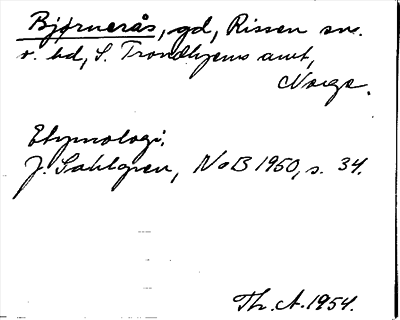 Bjørnerås, gd, Rissen sn.
o. hd, S. Trondhjems amt,
Norge.
Etymologi.
J. Sahlgren, NoB 1950, s. 34.
Th. A. 1954.